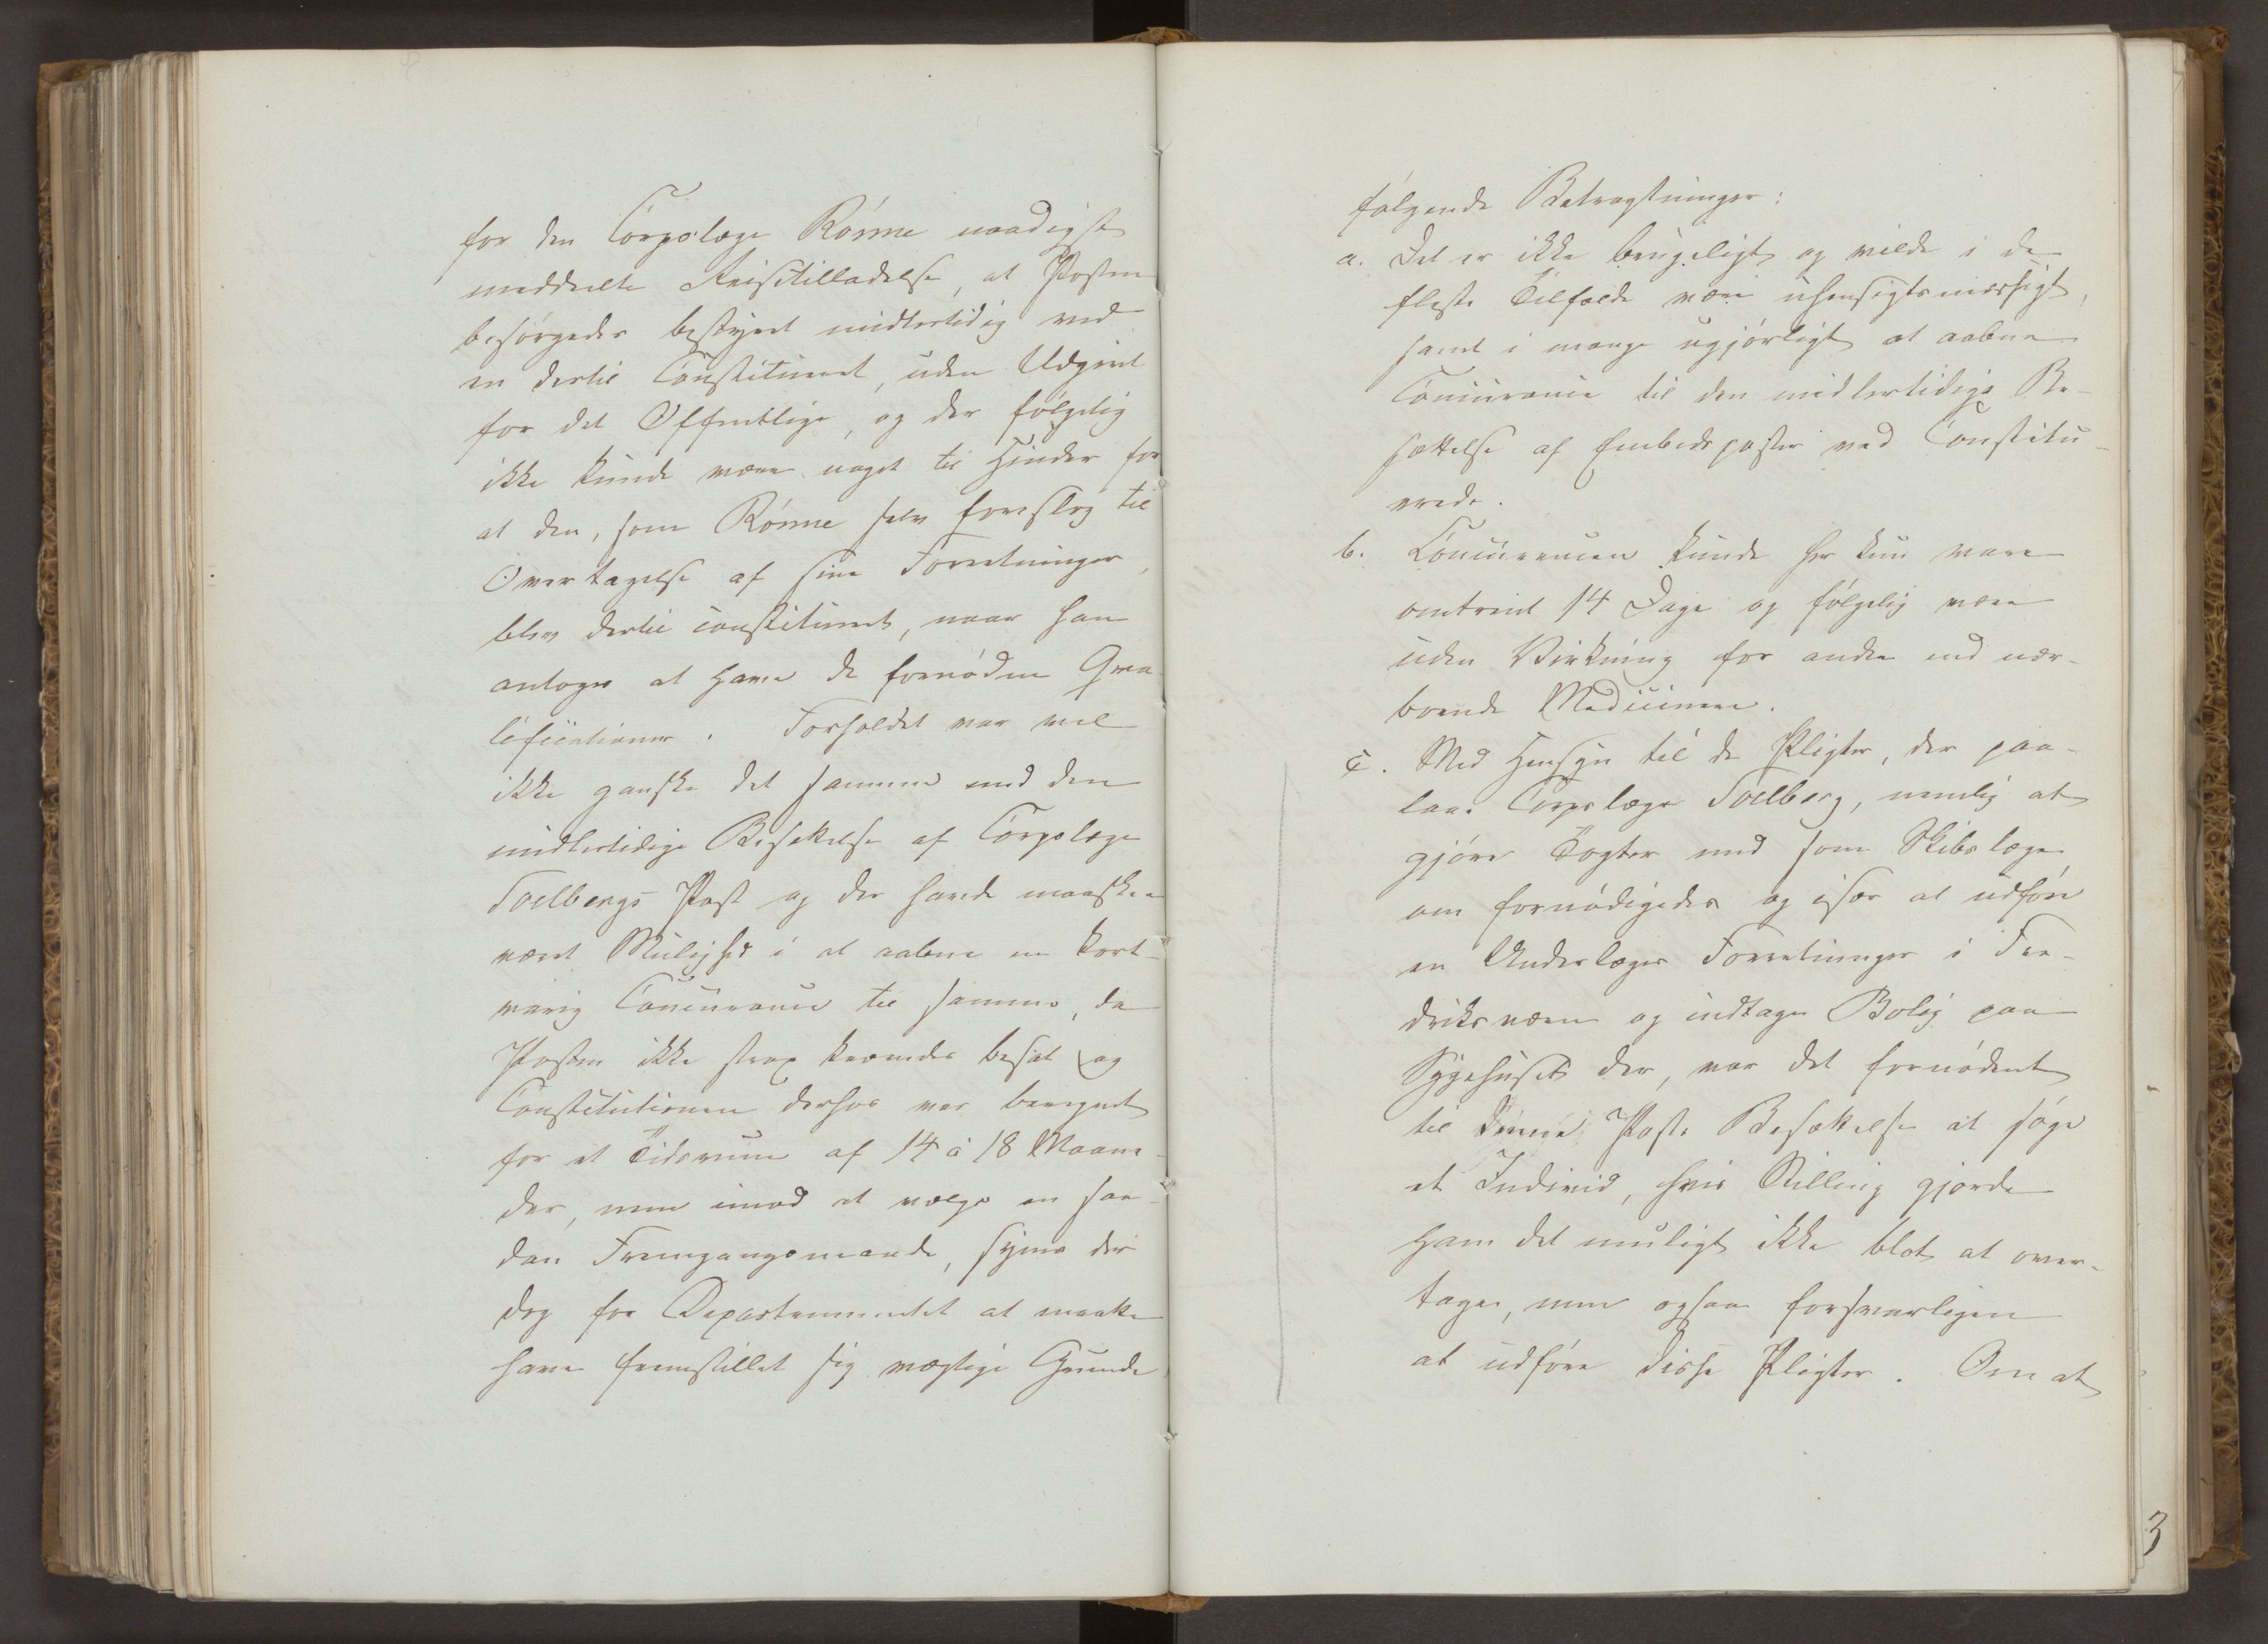 for den Corpslæge Rönne naadigst
meddeelte Reisetilladelse, at Posten
besörgedes bestyret midlertidig ved
en dertil Constitueret, uden Udgivt
for det Offentlige, og der fölgelig
ikke kunde være noget til Hinder for
at den, som Rönne selv foreslog til
Overtagelse af sine Forretninger,
blev dertil constitueret, naar han
antoges at have de fornödne Qva-
lificationer. Forholdet var vel
ikke ganske det samme med den
midlertidige Besættelse af Corpslæge
Soelbergs Post og der havde maaskee
været Mulighed i at aabne en kort-
varig Concurrance til samme, da
Posten ikke strax krævedes besat og
Constitutionen derhos var beregnet
for et Tidsrum af 14 à 18 Maane-
der, men imod at vælge en saa-
dan Fremgangsmaade, synes der
dog for Departementet at maatte
have fremstillet sig vægtige Grunde
fölgende Betragtninger:
a. Det er ikke brugeligt og vilde i de
fleste Tilfælde være uhensigtsmæssigt,
samt i mange ugjörligt at aabne
Concurrance til den midlertidige Be-
sættelse af Embedsposter ved Constitu-
erede.
b. Concurrencen kunde her kun vare
omtrent 14 Dage og fölgelig være
uden Virkning for andre end nær-
boende Medicinere.
c. Med Hensyn til de Pligter, der paa-
laae Corpslæge Soelberg, nemlig at
gjöre Togter med som Skibslæge,
om fornödigedes og især at udföre
en Underlæges Forretninger i Fre-
driksværn og indtage Bolig paa
Sygehuset der, var det fornödent
til denne Posts Besættelse at söge
et Individ, hvis Stilling gjorde
ham det muligt ikke blot at over-
tage, men ogsaa forsvarligen
at udföre disse Pligter. Om at
3